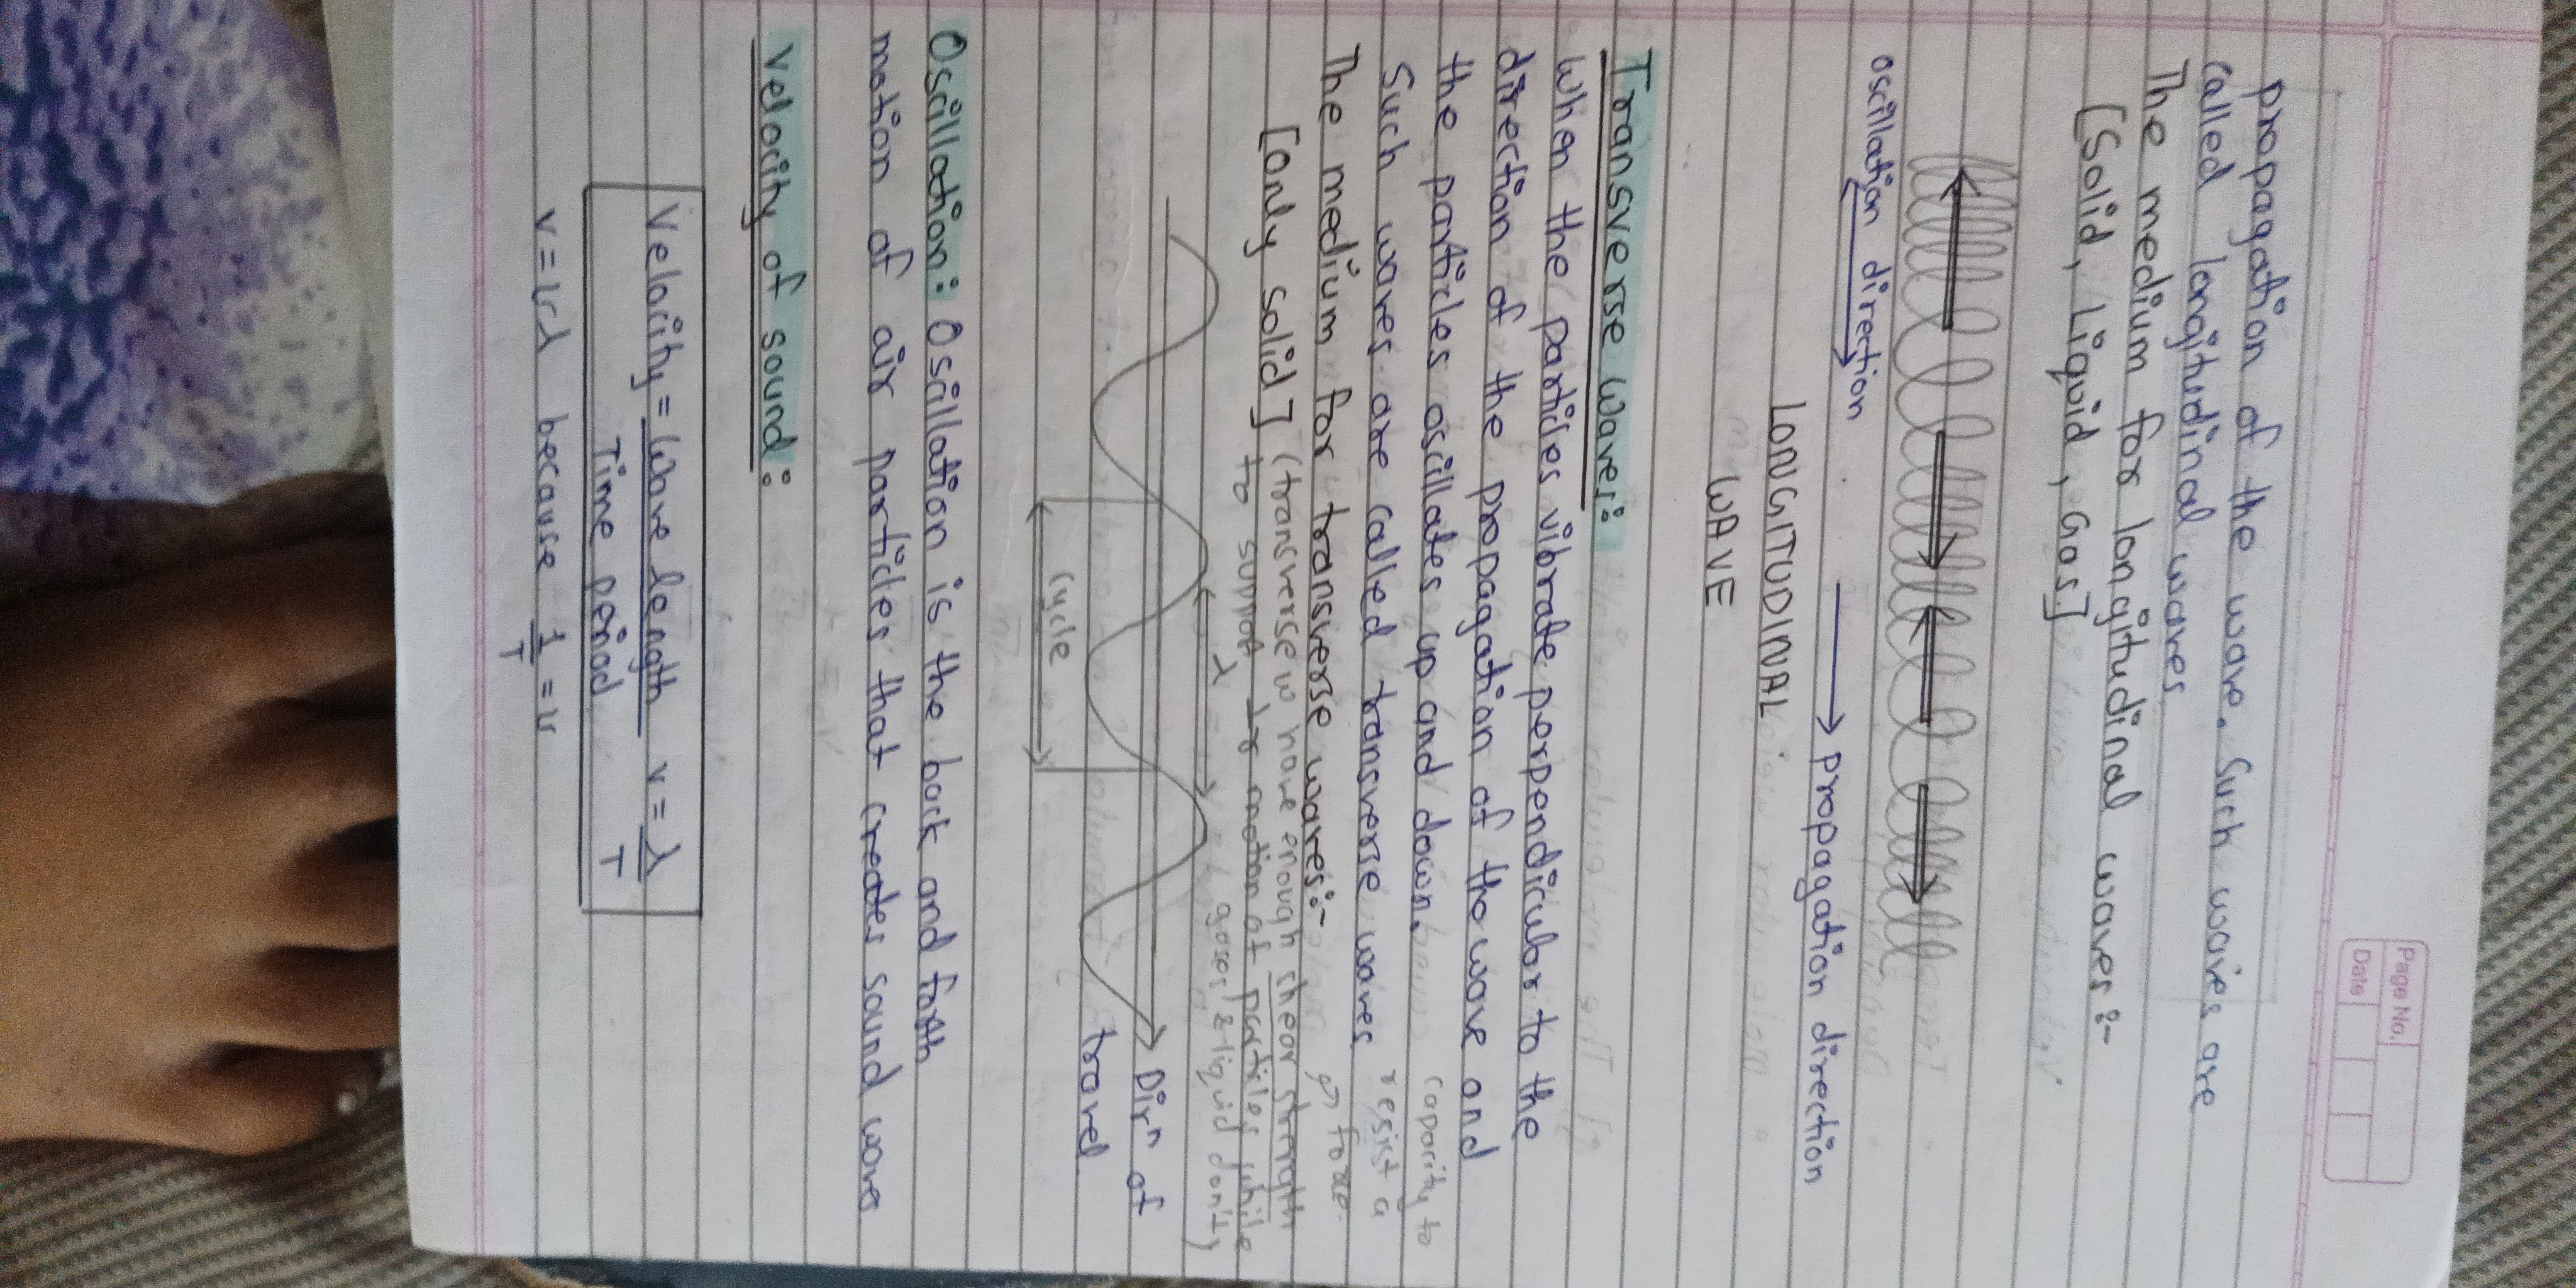 Page No.
Date
propagation of the wave. Such waves are
called longitudinal waves
The medium for longitudinal waves :-
[Solid, Liquid, Gas]
oscillation direction
propagation direction
LONGITUDINAL
WAVE
Transverse Waves:
When the particles vibrate perpendicular to the
direction of the propagation of the wave and
the particles oscillates up and down.
Such waves are called transverse waves
capacity to
resist a
force
The medium for transverse waves:-
[only solid] (transverse w have enough shear strength
to support motion of particles while
gases & liquid don't)
λ
cycle
Dirⁿ of
travel
Oscillation: Oscillation is the back and forth
motion of air particles that creates sound waves
Velocity of sound:
Velocity = Wave length v = λ
Time period T
v = νλ because 1/T = ν